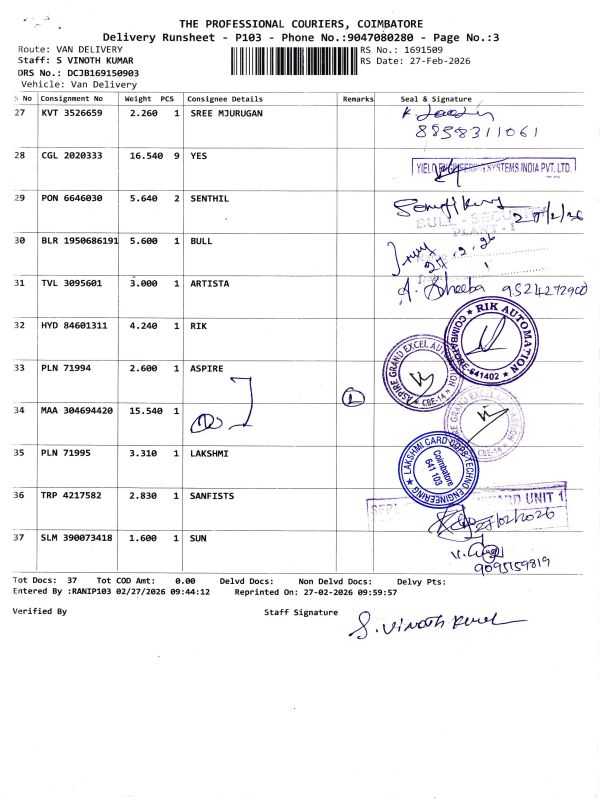 THE PROFESSIONAL COURIERS, COIMBATORE
Delivery Runsheet - P103 - Phone No.:9047080280 - Page No.:3
Route: VAN DELIVERY
RS No.: 1691509
Staff: S VINOTH KUMAR
RS Date: 27-Feb-2026
DRS No.: DCJB169150903
Vehicle: Van Delivery
S No Consignment No Weight PCS Consignee Details Remarks Seal & Signature
27 KVT 3526659 2.260 1 SREE MJURUGAN
8898311061
28 CGL 2020333 16.540 9 YES
YIELD ENGINEERING SYSTEMS INDIA PVT. LTD.
29 PON 6646030 5.640 2 SENTHIL
27/2/26
BULL - SECURITY
PLANT - 1
30 BLR 1950686191 5.600 1 BULL
27.2.26
31 TVL 3095601 3.000 1 ARTISTA
A. Sheeba 9524272900
32 HYD 84601311 4.240 1 RIK
RIK AUTOMATION COIMBATORE-641402
33 PLN 71994 2.600 1 ASPIRE
ASPIRE GRAND EXCEL CBE-14
34 MAA 304694420 15.540 1
1
35 PLN 71995 3.310 1 LAKSHMI
LAKSHMI CARD TECHNO ENGINEERING
Coimbatore
641 103
36 TRP 4217582 2.830 1 SANFISTS
UNIT 1
27/02/2026
37 SLM 390073418 1.600 1 SUN
9095159819
Tot Docs: 37 Tot COD Amt: 0.00 Delvd Docs: Non Delvd Docs: Delvy Pts:
Entered By :RANIP103 02/27/2026 09:44:12 Reprinted On: 27-02-2026 09:59:57
Verified By Staff Signature
S. Vinoth Kumar